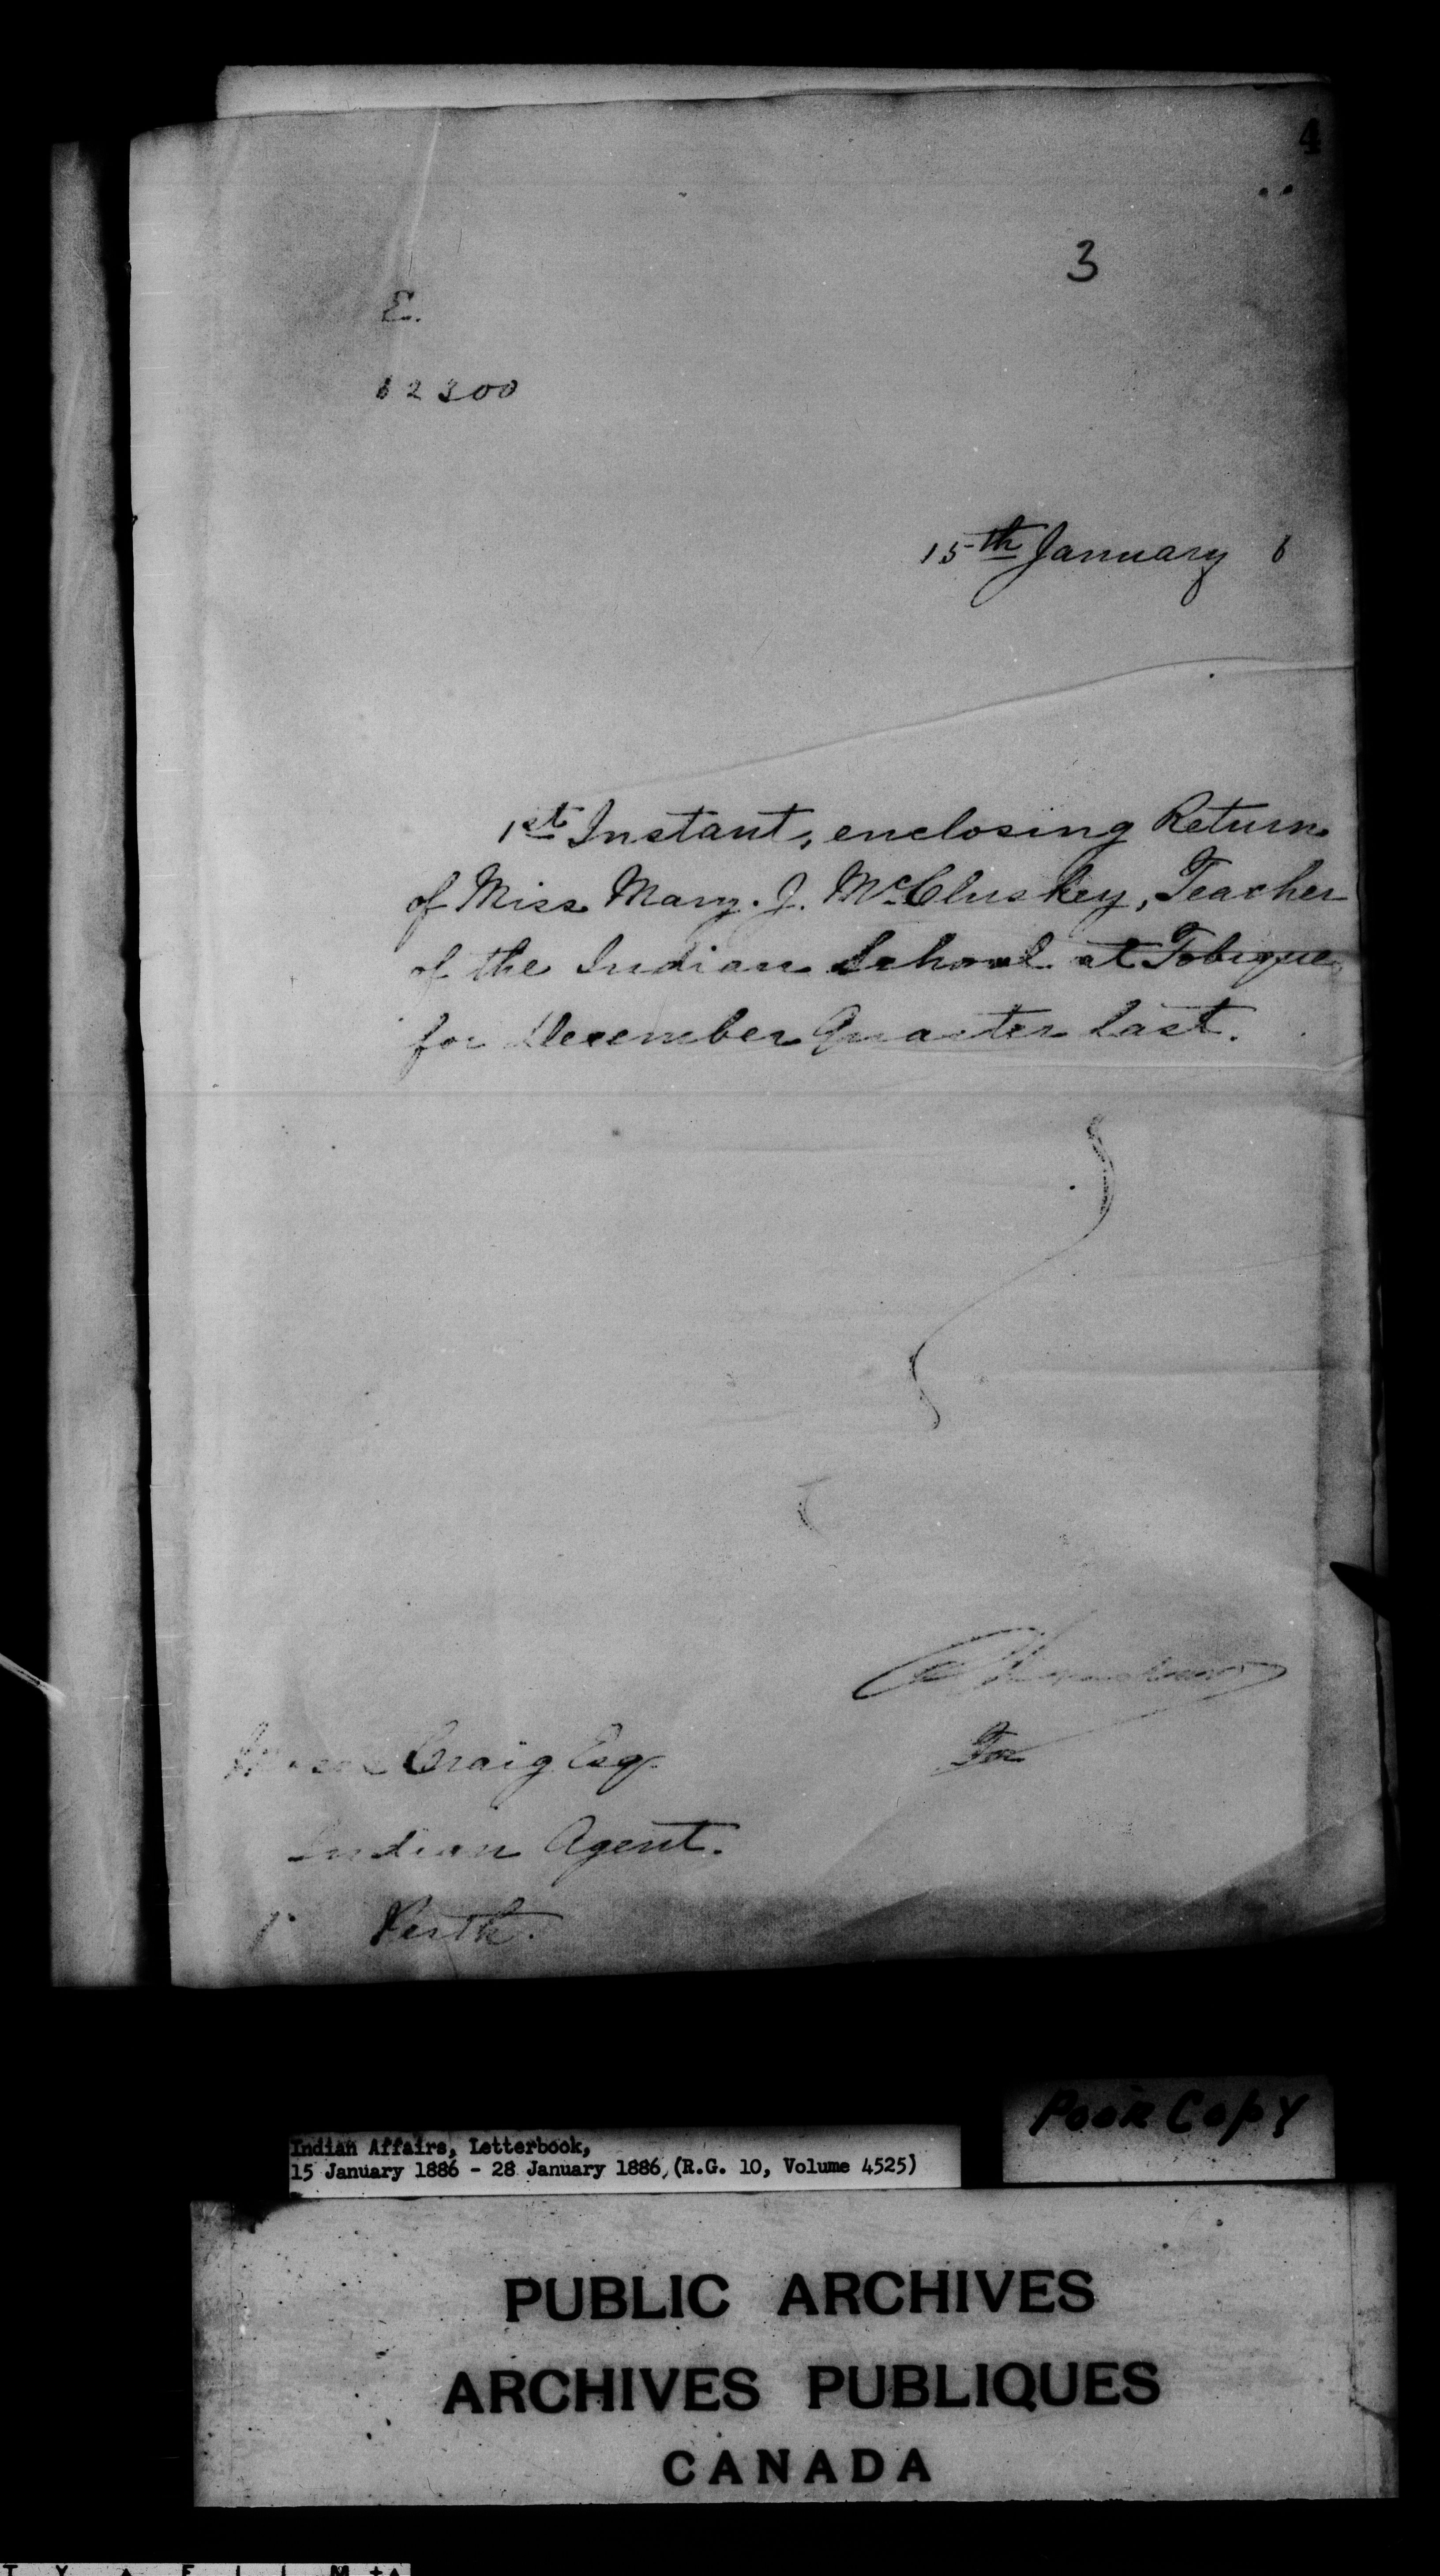 4
3
E.
62300
15th January 6
1st Instant, enclosing Return
of Miss Mary. J. McCluskey, Teacher
of the Indian School at Tobique
for December Quarter last.
For
Craig Esq
Indian Agent.
Perth.
Poor Copy
Indian Affairs, Letterbook,
15 January 1886 - 28 January 1886, (R.G. 10, Volume 4525)
PUBLIC ARCHIVES
ARCHIVES PUBLIQUES
CANADA